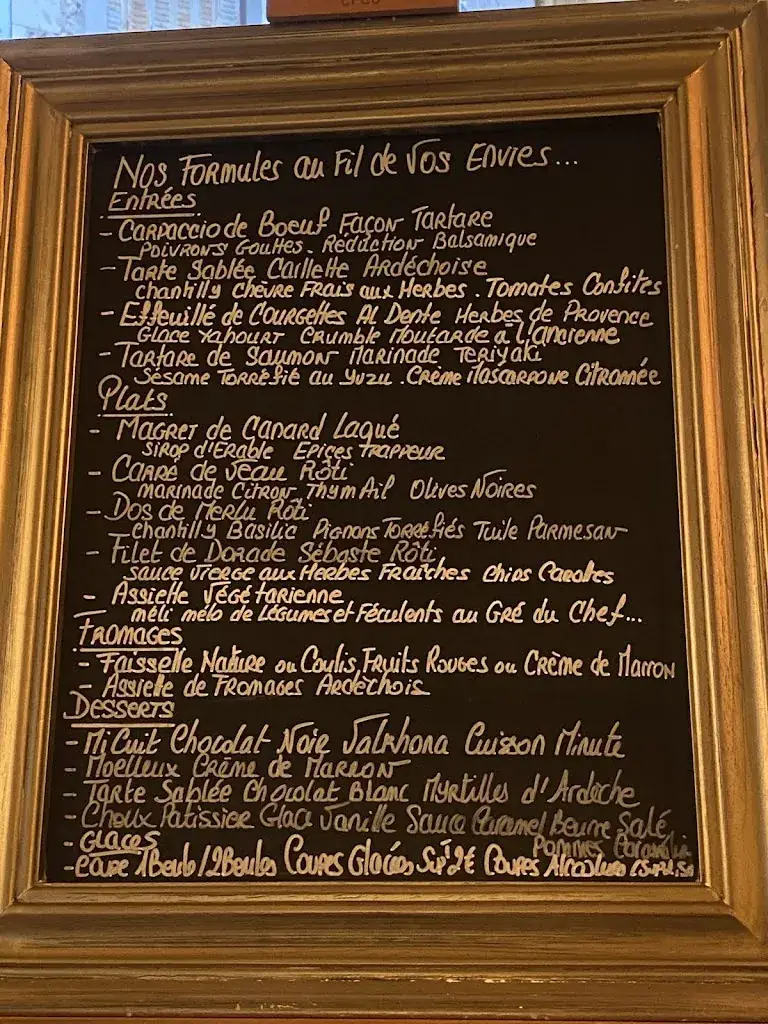 Nos Formules au Fil de Vos Envies...
Entrées
- Carpaccio de Boeuf Façon Tartare
Poivrons Gouttes. Réduction Balsamique
- Tarte Sablée Caillette Ardéchoise
chantilly Chèvre Frais aux Herbes. Tomates Confites
- Effeuillé de Courgettes Al Dente Herbes de Provence
Glace Yahourt Crumble Moutarde à l'ancienne
- Tartare de Saumon Marinade Teriyaki
Sésame Torréfié au Yuzu. Crème Mascarpone Citronnée
Plats
- Magret de Canard Laqué
Sirop d'Erable Epices Trappeur
- Carré de Veau Rôti
Marinade Citron, Thym Ail Olives Noires
- Dos de Merlu Rôti
Chantilly Basilic Pignons Torréfiés Tuile Parmesan
- Filet de Dorade Sébaste Rôti
sauce vierge aux Herbes Fraîches Chips Carottes
- Assiette Végétarienne
méli mélo de Légumes et Féculents au Gré du Chef...
Fromages
- Faisselle Nature ou Coulis Fruits Rouges ou Crème de Marron
- Assiette de Fromages Ardéchois
Desserts
- Mi Cuit Chocolat Noir Valrhona Cuisson Minute
- Moelleux Crème de Marron
- Tarte Sablée Chocolat Blanc Myrtilles d'Ardèche
- Choux Patissier Glace Vanille Sauce Caramel Beurre Salé
Pommes
- Glaces
- Coupe 1 Boule / 2 Boules Coupes Glacées Sup 2€ Coupes